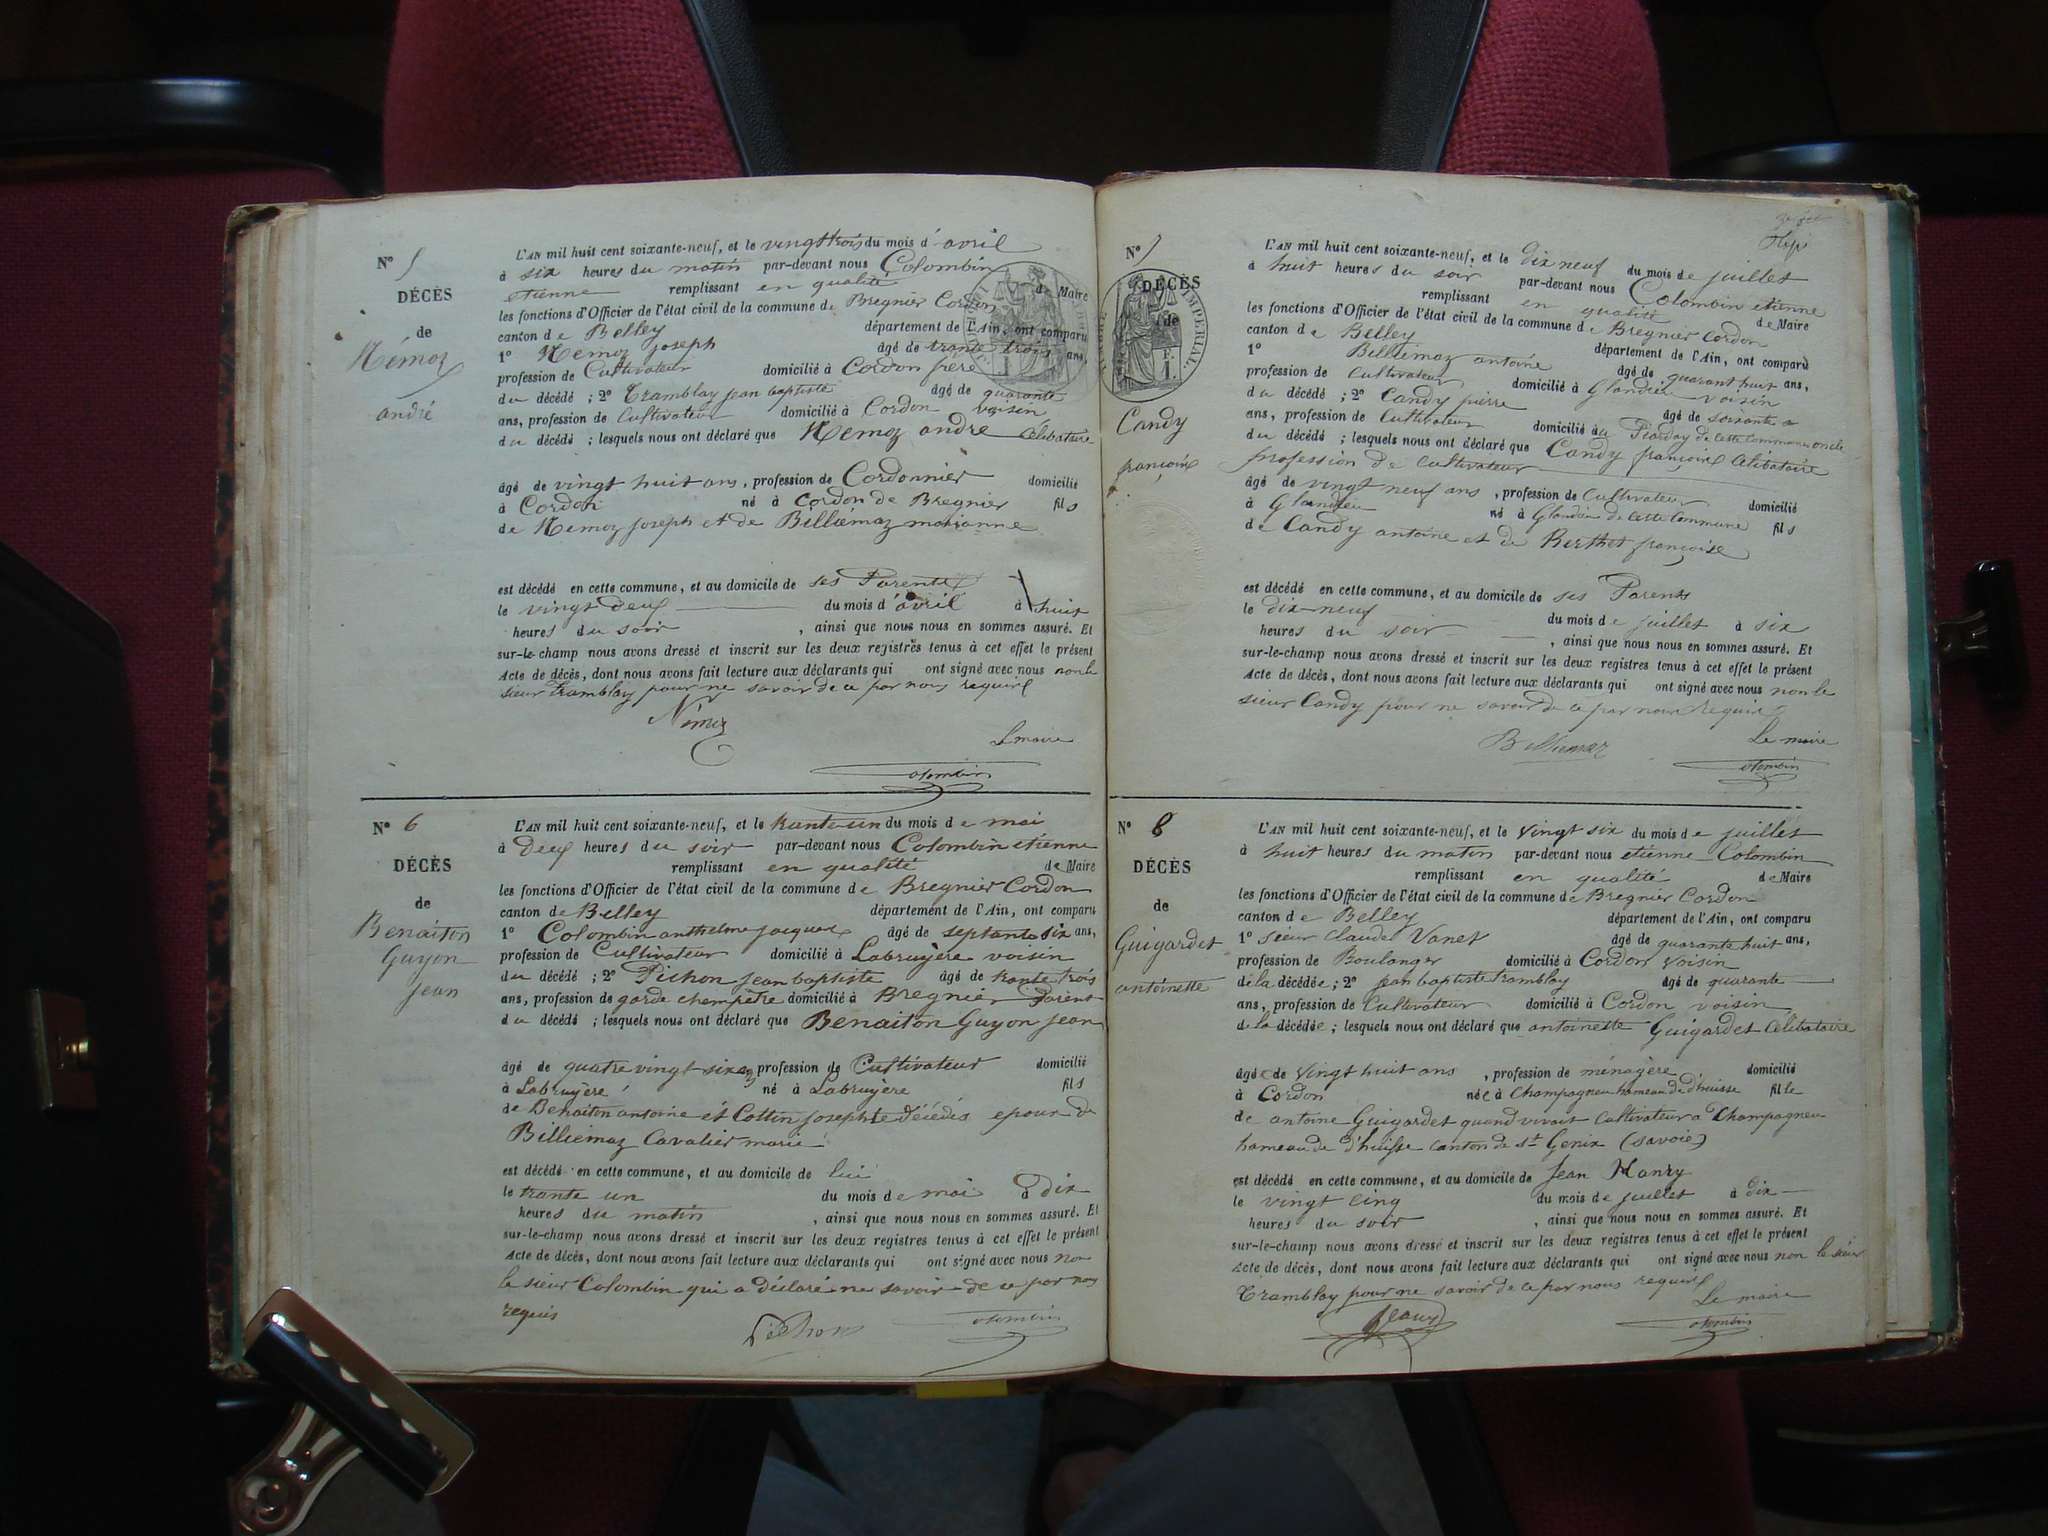 Nº 5
DÉCÈS
de
Némoz
andré
L'AN mil huit cent soixante-neuf, et le vingt trois du mois d'avril
à six heures du matin par-devant nous Colombin
etienne remplissant en qualité de Maire
les fonctions d'Officier de l'état civil de la commune de Bregnier Cordon
canton de Belley département de l'Ain, ont comparu
1º Nemoz joseph âgé de trante trois ans,
profession de Cultivateur domicilié à Cordon frère
du décédé ; 2º Tramblay jean baptiste âgé de quarante
ans, profession de Cultivateur domicilié à Cordon voisin
du décédé ; lesquels nous ont déclaré que Nemoz andre Célibataire
âgé de vingt huit ans, profession de Cordonnier domicilié
à Cordon né à Cordon de Bregnier fils
de Nemoz joseph et de Billiémaz marianne
est décédé en cette commune, et au domicile de ses Parents
le vingt deux du mois d'avril à huit
heures du soir, ainsi que nous nous en sommes assuré. Et
sur-le-champ nous avons dressé et inscrit sur les deux registres tenus à cet effet le présent
Acte de décès, dont nous avons fait lecture aux déclarants qui ont signé avec nous non le
sieur Tramblay pour ne savoir de ce par nous requis
Némoz
Le maire
Colombin
Nº 6
DÉCÈS
de
Benaiton
Guyon
jean
L'AN mil huit cent soixante-neuf, et le trante un du mois de mai
à Deux heures du soir par-devant nous Colombin étienne
remplissant en qualité de Maire
les fonctions d'Officier de l'état civil de la commune de Bregnier Cordon
canton de Belley département de l'Ain, ont comparu
1º Colombin anthelme jacques âgé de septante six ans,
profession de Cultivateur domicilié à Labruyère voisin
du décédé ; 2º Pichon jean baptiste âgé de trante trois
ans, profession de garde chempètre domicilié à Bregnier parent
du décédé ; lesquels nous ont déclaré que Benaiton Guyon jean
âgé de quatre vingt six ans profession de Cultivateur domicilié
à Labruyère né à Labruyère fils
de Benaiton antoine et Cottin josephte Décédés epoux de
Billiemaz Cavalier marie
est décédé en cette commune, et au domicile de lui
le trante un du mois de mai à dix
heures du matin, ainsi que nous nous en sommes assuré. Et
sur-le-champ nous avons dressé et inscrit sur les deux registres tenus à cet effet le présent
Acte de décès, dont nous avons fait lecture aux déclarants qui ont signé avec nous non
le sieur Colombin qui a déclaré ne savoir de ce par nous
requis
Pichon Colombin
Nº 7
DÉCÈS
de
IMPERIAL
Candy
françois
L'AN mil huit cent soixante-neuf, et le dix neuf du mois de juillet
à huit heures du soir par-devant nous Colombin etienne
remplissant en qualité de Maire
les fonctions d'Officier de l'état civil de la commune de Bregnier Cordon
canton de Belley département de l'Ain, ont comparu
1º Billiemaz antoine âgé de quarant huit ans,
profession de Cultivateur domicilié à Glandieu voisin
du décédé ; 2º Candy pierre âgé de soixante
ans, profession de Cultivateur domicilié à de cette Commune oncle
du décédé ; lesquels nous ont déclaré que Candy françois Célibataire
profession de cultivateur
âgé de vingt neuf ans, profession de Cultivateur domicilié
à Glandieu né à Glandieu de cette Commune fils
de Candy antoine et de Berthet françoise
est décédé en cette commune, et au domicile de ses Parents
le dix-neuf du mois de juillet à six
heures du soir, ainsi que nous nous en sommes assuré. Et
sur-le-champ nous avons dressé et inscrit sur les deux registres tenus à cet effet le présent
Acte de décès, dont nous avons fait lecture aux déclarants qui ont signé avec nous non le
sieur Candy pour ne savoir de ce par nous Requis
Billiemaz
Le maire
Colombin
Nº 8
DÉCÈS
de
Guigardet
antoinette
L'AN mil huit cent soixante-neuf, et le vingt six du mois de juillet
à huit heures du matin par-devant nous etiénne Colombin
remplissant en qualité de Maire
les fonctions d'Officier de l'état civil de la commune de Bregnier Cordon
canton de Belley département de l'Ain, ont comparu
1º sieur Claude Vanet âgé de quarante huit ans,
profession de Boulanger domicilié à Cordon voisin
de la décédée ; 2º jean baptiste tramblay âgé de quarante
ans, profession de Cultivateur domicilié à Cordon voisin
de la décédée ; lesquels nous ont déclaré que antoinette Guigardet Célibataire
âgée de vingt huit ans, profession de ménagère domicilié
à Cordon née à Champagneu hameau de d'huisse fille
de antoine Guigardet quand vivait Cultivateur a Champagneu
hameau de d'huisse canton de St Genix (savoie)
est décédé en cette commune, et au domicile de Jean Nanry
le vingt cinq du mois de juillet à dix
heures du soir, ainsi que nous nous en sommes assuré. Et
sur-le-champ nous avons dressé et inscrit sur les deux registres tenus à cet effet le présent
Acte de décès, dont nous avons fait lecture aux déclarants qui ont signé avec nous non le sieur
Tramblay pour ne savoir de ce par nous requis
Le maire
Colombin